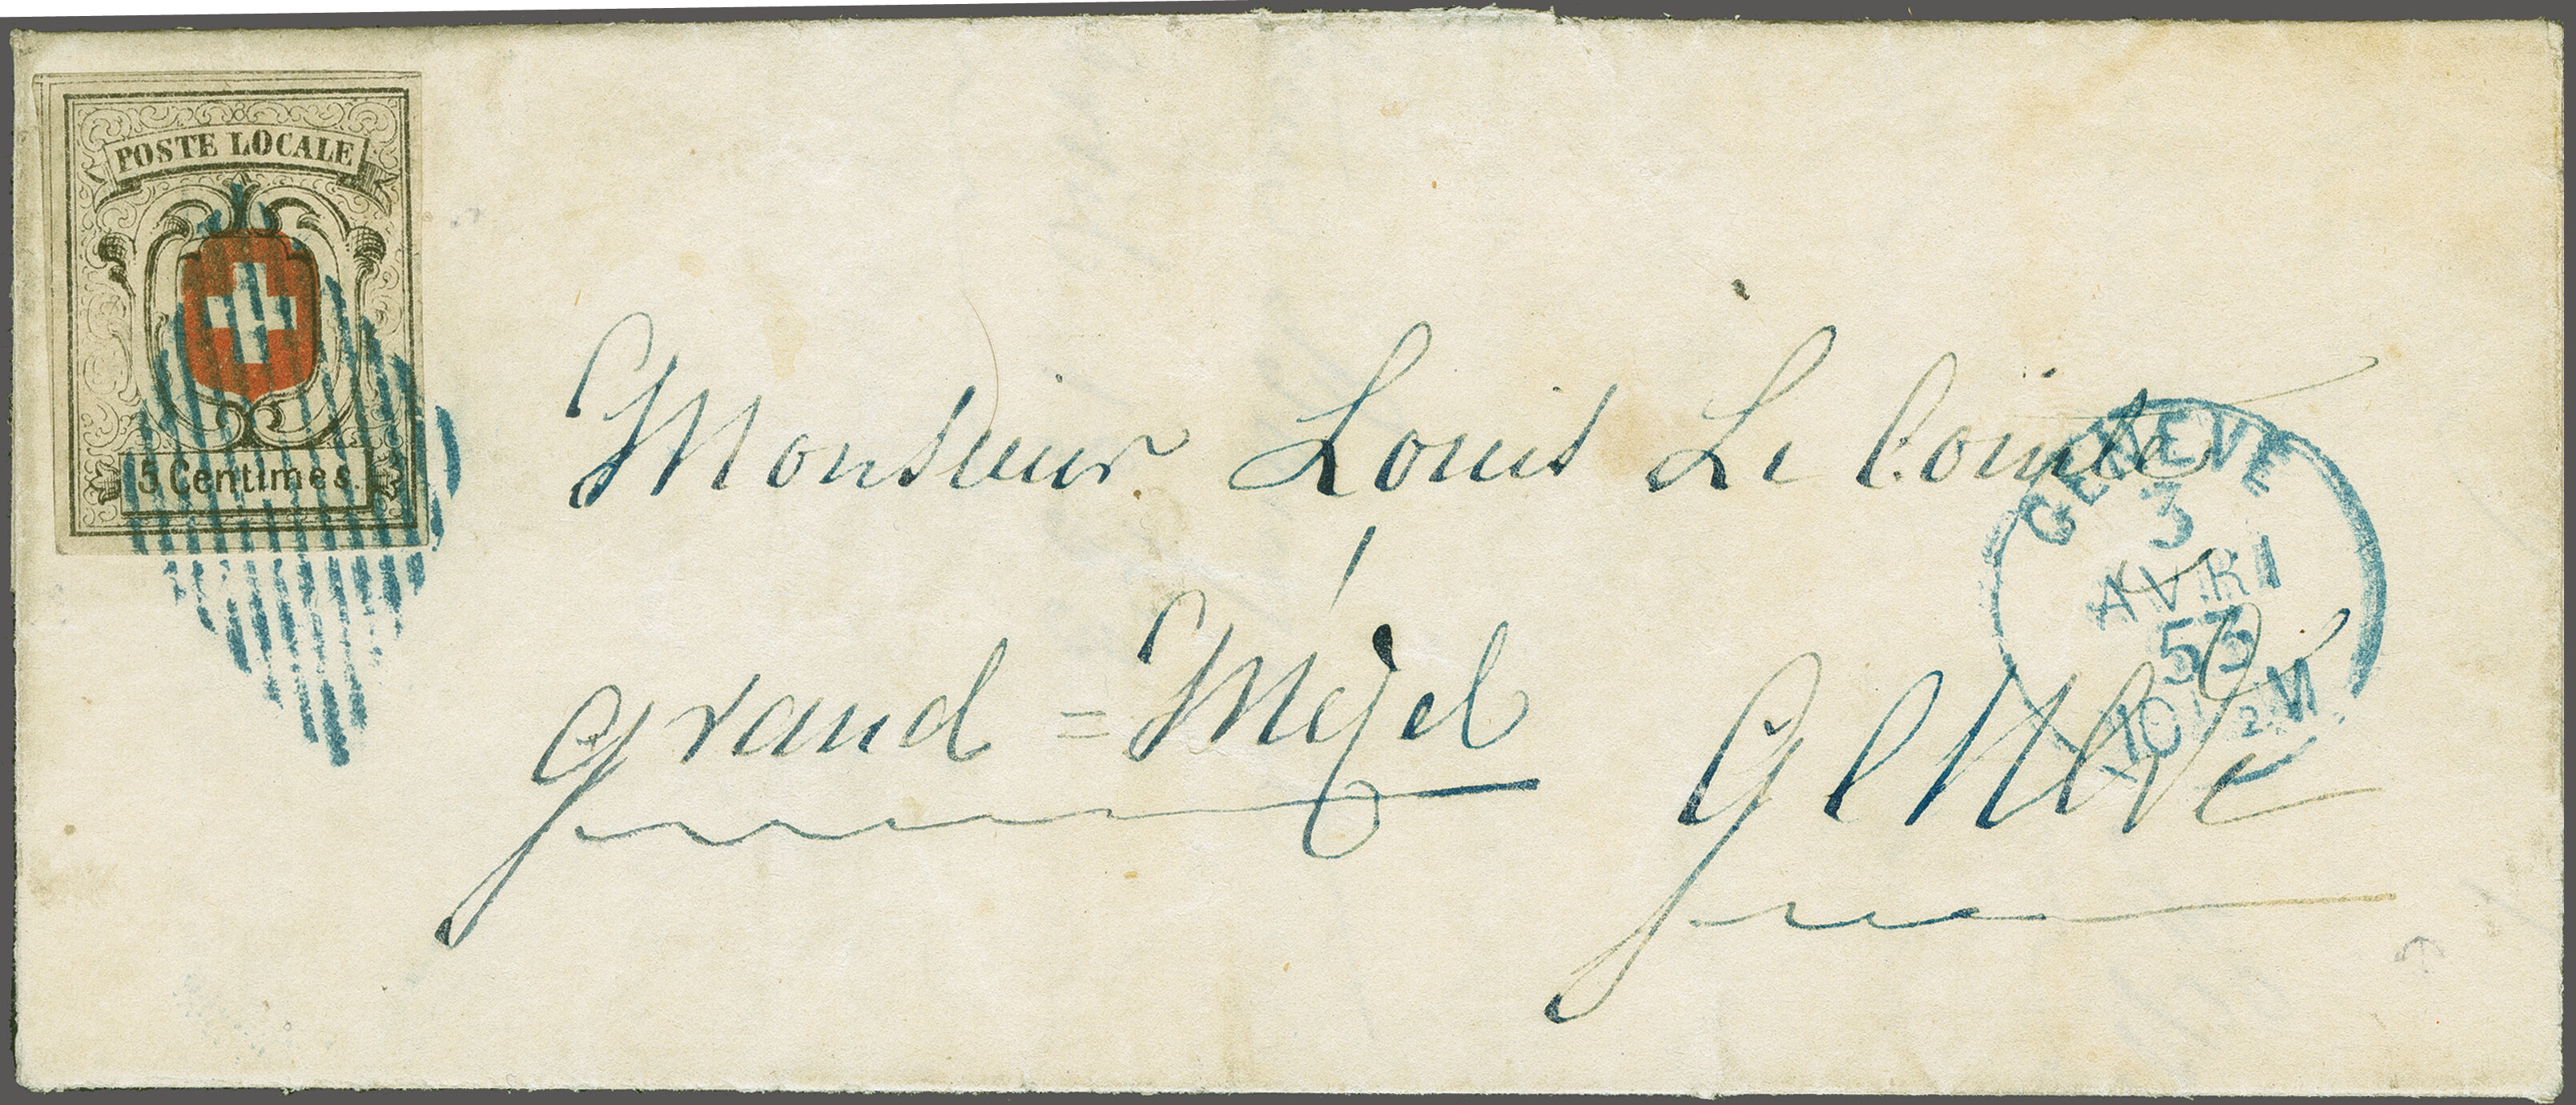 POSTE LOCALE
5 Centimes.
Monsieur Louis Le Comte
Grand=Mézel
Genève
GENÈVE
3
AVRI
53
10